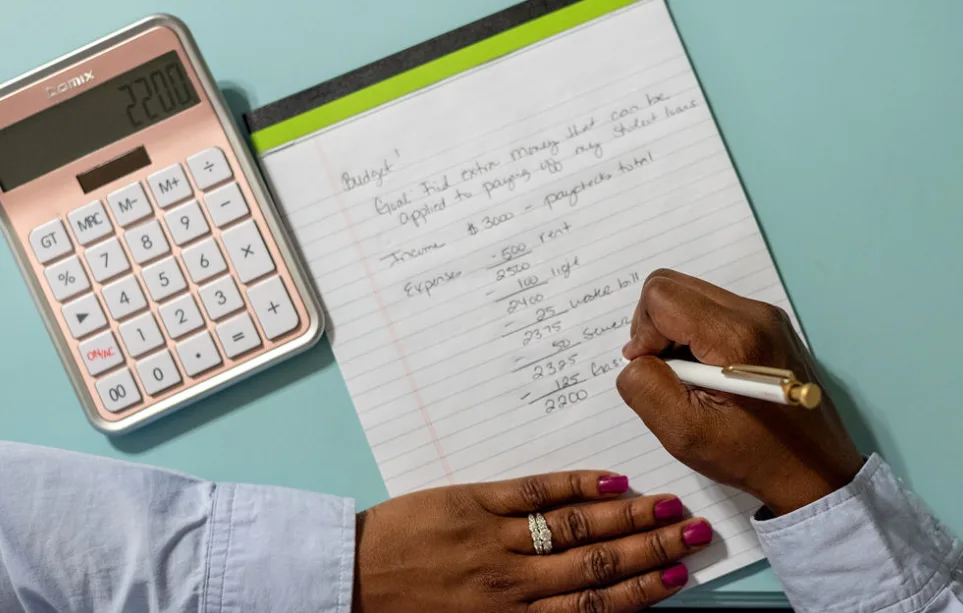 comix
2200
GT
MRC
M-
M+
÷
%
7
8
9
−
▶
4
5
6
×
ON/AC
1
2
3
+
00
0
.
=
Budget!
Goal find extra money that can be
applied to paying off my student loans
Income $3000 - paychecks total
Expenses - 500 rent
2500
- 100 light
2400
- 25 water bill
2375
- 50 sewer
2325
- 125 Gas
2200